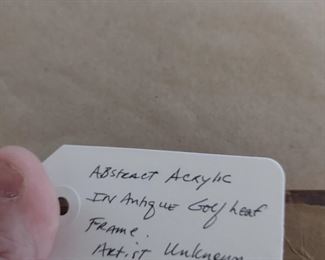 Abstract Acrylic
In Antique Golf Leaf
Frame.
Artist Unknown